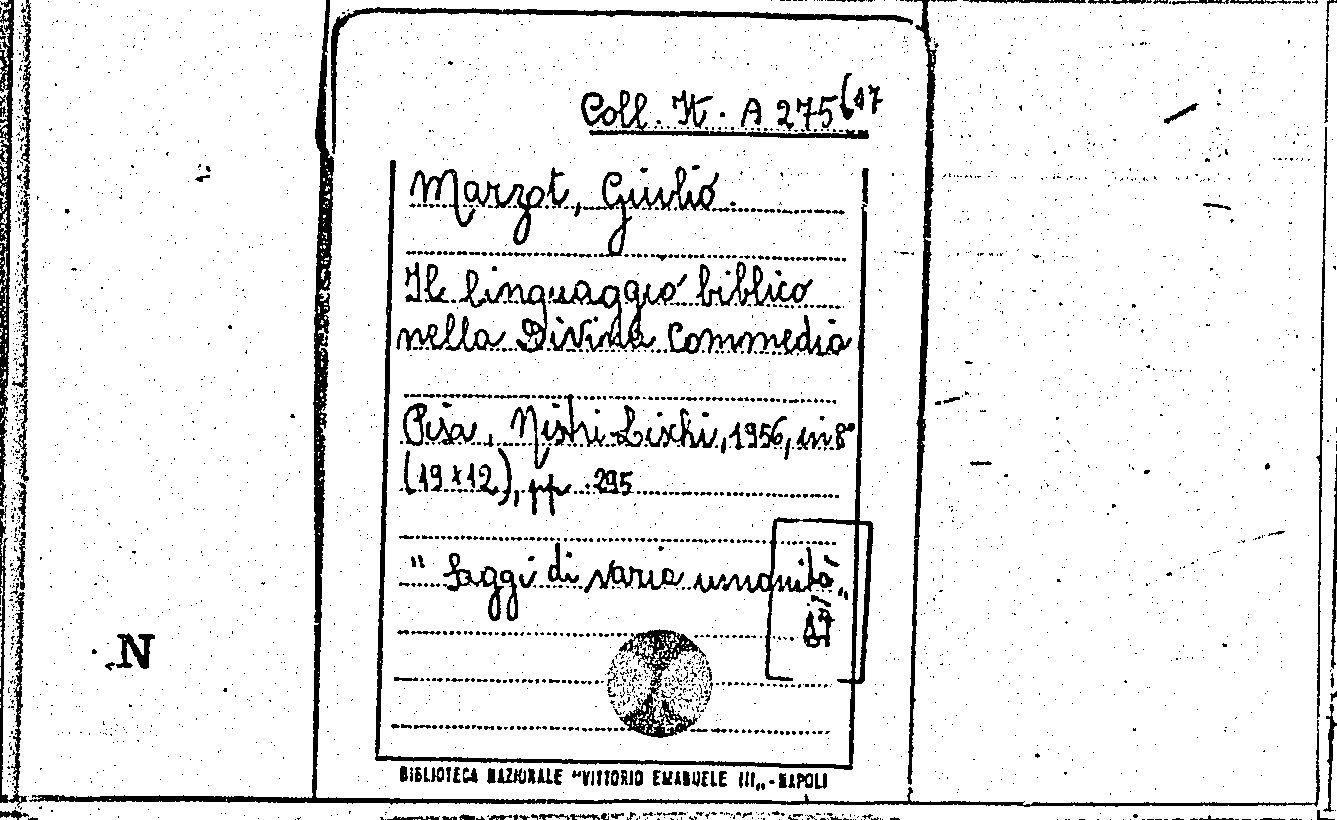 Coll. It. A 275(17
Marzot, Giulio.
Il linguaggio biblico
nella Divina Commedia
Pisa, Nistri-Lischi, 1956, in 8°
(19x12), pp. 295
"Saggi di varia umanità"
N
BIBLIOTECA NAZIONALE "VITTORIO EMANUELE III„ - NAPOLI